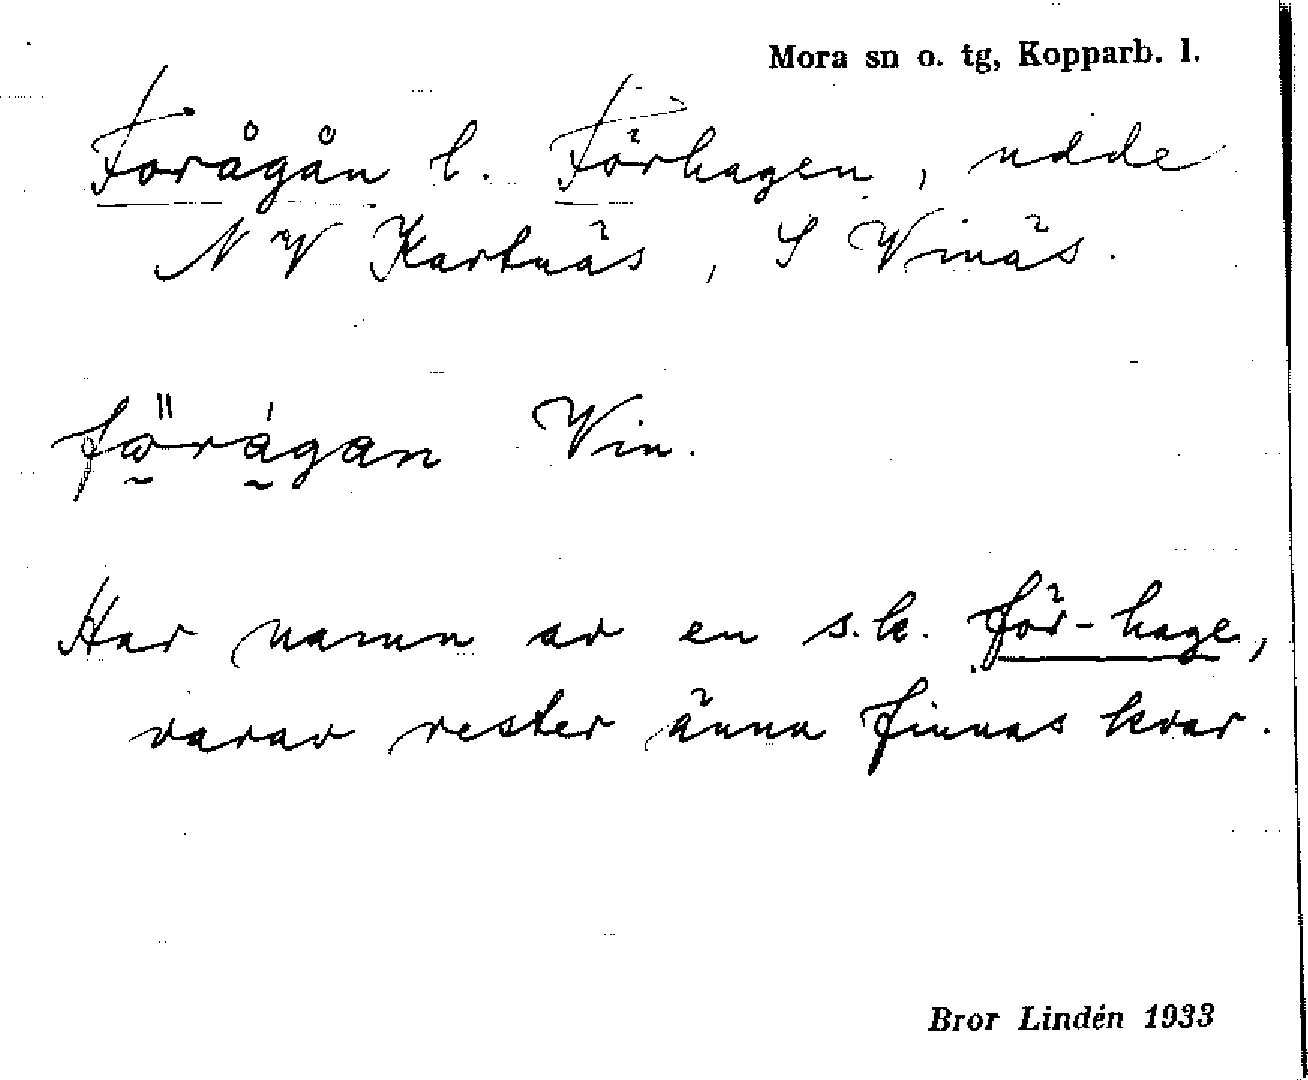 Mora sn o. tg, Kopparb. l.
Forågån l. Förhagen, udde
NV Kartnäs, S Vinäs.
fö̰rá̰gan Vin.
Har namn av en s.k. för-hage,
varav rester änna finnas kvar.
Bror Lindén 1933